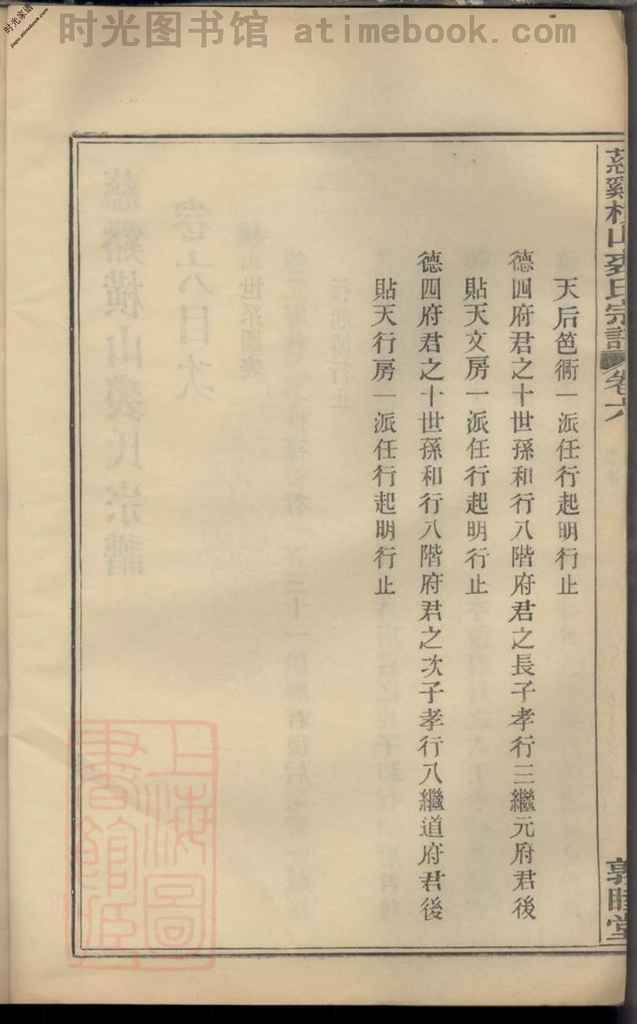 时光图书馆 atimebook.com
时光家谱
慈谿橫山裘氏宗譜 卷六
天后笆衕一派任行起明行止
德四府君之十世孫和行八階府君之長子孝行三繼元府君後
貼天文房一派任行起明行止
德四府君之十世孫和行八階府君之次子孝行八繼道府君後
貼天行房一派任行起明行止
敦睦堂
上海圖書館臧